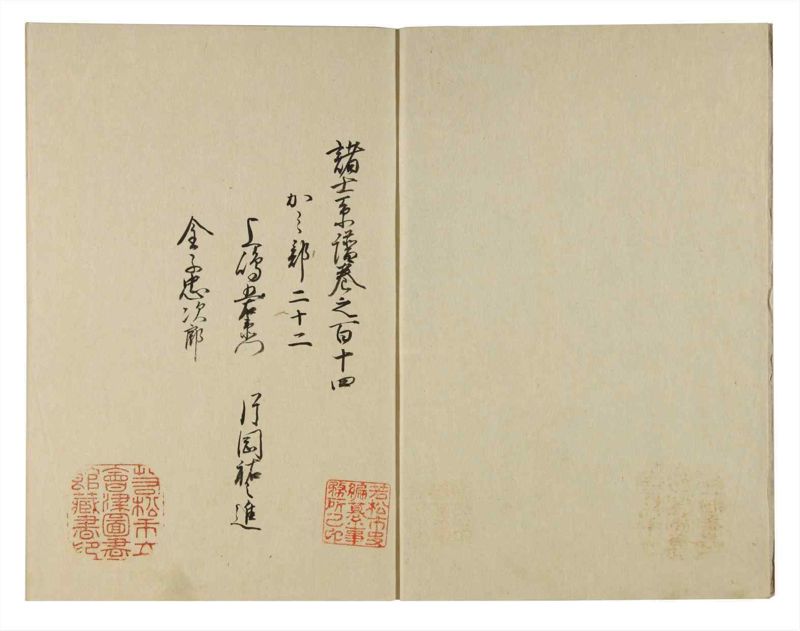 諸士系譜巻之百十四
かノ部二十二
上嶋五右衛門
片岡祐之進
金子忠次郎
若松市史
編纂事
務所之印
若松市立
會津圖書
館藏書印